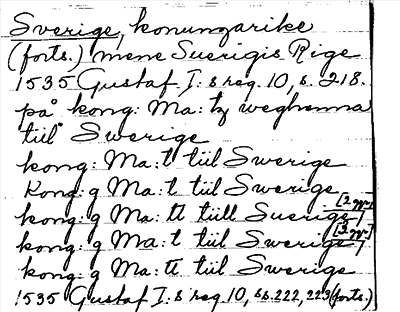 Sverige, konungarike
(forts.) mene Suerigis Rige
1535 Gustaf I:s reg. 10, s. 218.
på kong: Ma: tz weghenna
tiil Swerige
kong: Ma: t tiil Swerige
Kong: g Ma: t tiil Swerige
kong: g Ma: tt tiill Suerige [2 ggr]
kong: g Ma: t tiil Swerige [3 ggr]
kong: g Ma: tt tiil Swerige
1535 Gustaf I:s reg. 10, ss. 222, 223 (forts.)